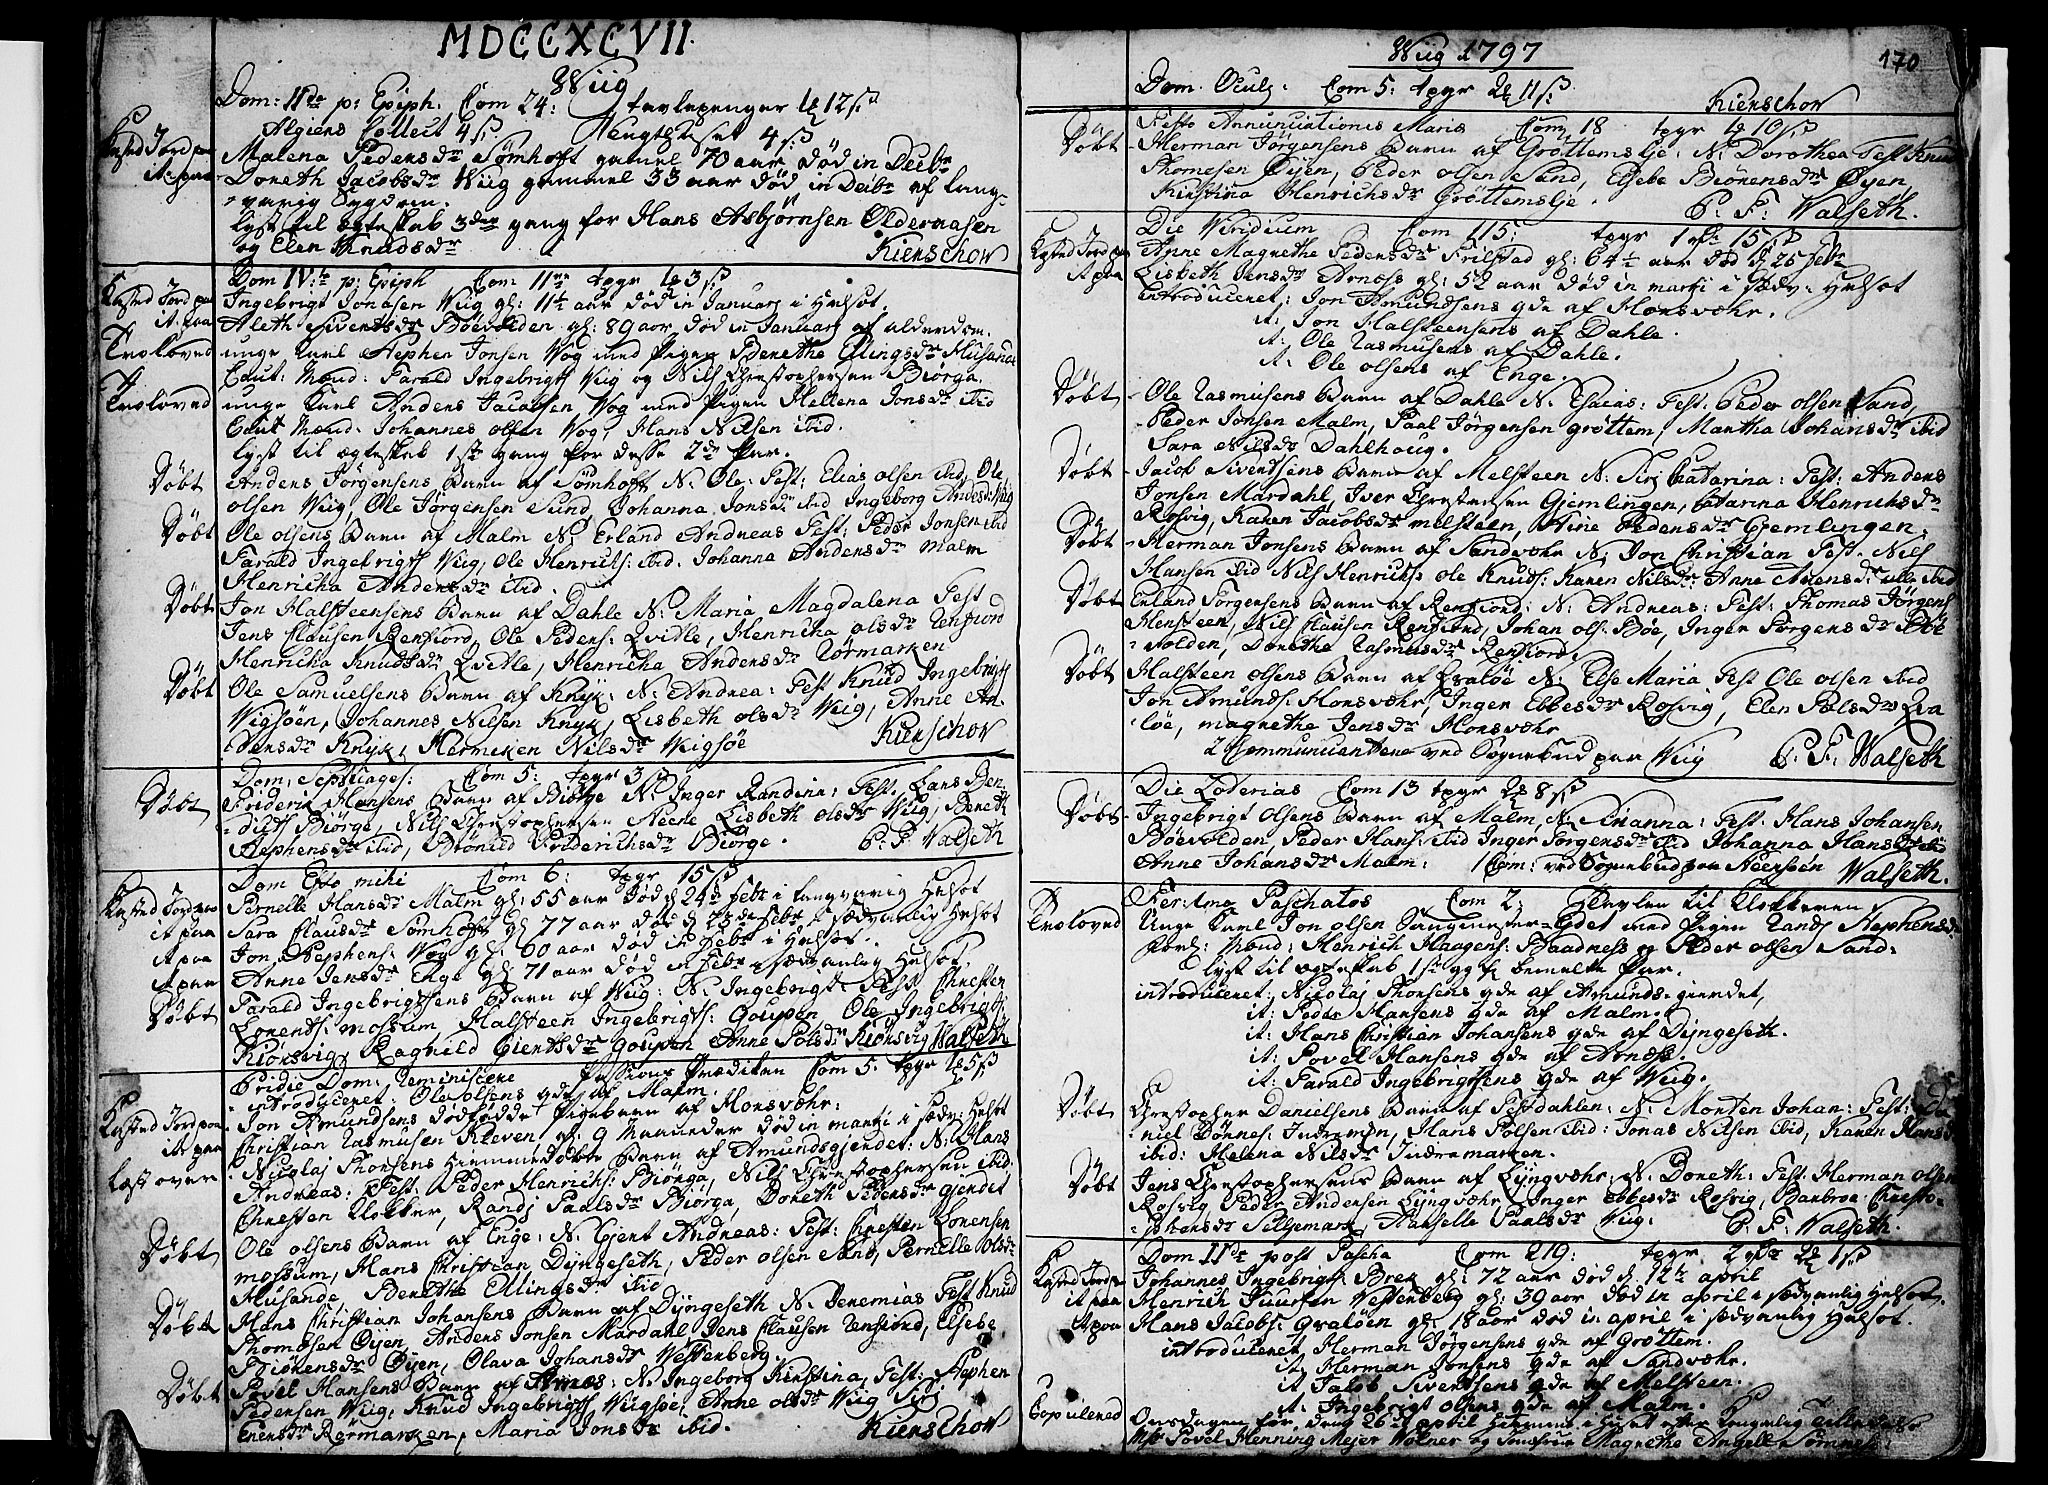 MDCCXCVII.
Wiig
Dom: IIda p: Epiph. Com 24: tavlepenger 12 s
Algiens Collect 4 s
Kasted Jord paa Malena Pedersdr Sømhoft gamel 70 aar død in Decbr
it: paa Doreth Jacobsdr Wiig gammel 33 aar død in Decbr af lang-
varig Sygdom.
lyst til egteskab 3die gang for Hans Asbjørnsen Oldernasen
og Elen Knudsdr Kierschow
Dom IV: p: Epiph Com 11 tpgr 3 s
Kasted Jord paa Ingebrigt Jonasen Wiig gl: 11½ aar død in Januarj i Helsot.
it: paa Aleth Sivertsdr Bøevolden gl: 89 aar død in Januarj af alderdom.
Troloved unge karl Stephen Jonsen Vog med Pigen Berethe Ellingsdr Husande
Caut: Mænd: Farald Ingebrigts Wiig og Nils Christophersen Biørga.
Troloved unge Karl Anders Jacobsen Vog med Pigen Hellena Jonsdr ibid
Caut Mænd. Johannes olsen Vog, Hans Nilsen ibid.
lyst til egteskab 1ste gang for desse 2de Par.
Døbt Anders Jørgensens Barn af Sømhoft N: Ole: Test: Elias olsen ibid, Ole
olsen Wiig, Ole Jørgensen Sund, Johanna Jonsdr ibid Ingeborg Andersdr Wiig
Døbt Ole olsens Barn af Malm N: Erland Andreas Test: Peder Jonsen ibid
Farald Ingebrigts Wiig, Ole Henrichs: ibid. Johanna Andersdr Malm
Henricha Andersdr ibid.
Døbt Jon Halsteensens Barn af Dahle N: Maria Magdalena Test
Jens Clausen Rensiord, Ole Peders: Qvitle, Henricha olsdr Rensiord
Henricha Knudsdr Qvitle, Henricha Andersdr Rørmarken
Døbt Ole Samuelsens Barn af Knyk: N: Andrea: Test Knud Ingebrigts
Wigsøen, Johannes Nilsen Knyk, Lisbeth olsdr Wiig, Anne An-
dersdr Knyk, Hermeken Nilsdr Wigsøe Kierschow
Dom: Septuages: Com 5: tpgr 3
Døbt Friderik Hansens Barn af Biørge N: Inger Randina: Test: Lars Ben-
dicts Biørge, Nils Christophersen Neerle Lisbeth olsdr Wiig, Bereth
Stephensdr ibid, Brønild Friderichsdr Biørge. P: F: Walseth
Dom Esto mihi Com 6: tpgr 15 s
Kasted Jord paa Pernelle Hansdr Malm gl: 55 aar død d 24de Febr i langvarig Helsot
it paa Sara Clausdr Sømhoft gl 77 aar død d 28de Febr i sædvanlig Helsot
it paa Jon Stephens: Vog gl: 60 aar død in Febr i Helsot.
it paa Anne Jensdr Enge gl 71 aar død in Febr i sædvanlig Helsot.
Døbt Farald Ingebrigtsens Barn af Wiig: N: Ingebrigt: Test Christen
Lorents: mossum, Halsteen Ingebrigts: Goupen Ole Ingebrigts
Kiørsvig, Ragnild Gjertsdr Goupen Anne Polsdr Kiørsvig Walseth
Pridie Dom: Reminiscere Passions Prædiken Com 5. tpgr 5 s
introduceret: Ole olsens gde af Malm.
Kasted Jord paa Jon Amundsens dødfødde Pigebarn af Horsvær:
it paa Christian Rasmusen Kleven gl: 9 Maaneder død in martj i sædv: Helsot
læst over Nicolaj Thorsens hiemmedøbte Barn af Amundsgjerdet: N: Hans
Andreas: Test: Peder Henrichs: Biørga, Nils Christophersen ibid,
Christen Klokker, Randj Paalsdr Biørga, Doreth Pedersdr Gjerdet
Døbt Ole olsens Barn af Enge: N: Gjert Andreas: Test: Christen Lorensen
mossum, Hans Christian Dyngeseth, Peder olsen Sand, Pernelle olsdr
Husande, Berethe Ellingsdr ibid
Døbt Hans Christian Johansens Barn af Dyngeseth N: Jeremias Test Knud
Thomæsen Øyen, Anders Jonsen Mardahl Jens Clausen Rensiord, Elsebe
Biørensdr Øyen, Olava Johansdr Vestenberg.
Døbt Povel Hansens Barn af Arnæs: N: Ingeborg Kirstina, Test: Stephen
Pedersen Wiig, Knud Ingebrigts Wiigsøe, Anne olsdr Wiig Siri
Enersdr Rørmarken, Maria Jonsdr ibid. Kierschow
170
Wiig 1797
Dom. Oculj: Com 5: tpgr 11 s: Kierschow
Festo Annunciationes Mariæ Com 18 tpgr 10 s
Døbt Herman Jørgensens Barn af Grøttemslje: N: Dorothea Test Knud
Thomesen Øyen, Peder olsen Sand, Elsebe Biørensdr Øyen,
Kirstina Henrichsdr Grøttemslje. P: F: Walseth.
Die Viridium Com 115: tpgr 1 rdr 15 s
Kasted Jord paa Anne Magrethe Pedersdr Frilstad gl: 64½ aar død d 25 Febr
it paa Lisbeth Jensdr Arnæss gl: 52 aar død in martj i sædv: Helsot
Introduceret: Jon Amundsens gde af Horsvær.
it: Jon Halsteensens af Dahle.
it: Ole Rasmusens af Dahle.
it: Ole olsens af Enge.
Døbt Ole Rasmusens Barn af Dahle N. Esaias: Test: Peder olsen Sand,
Peder Jonsen Malm, Paal Jørgensen grøttem, Martha Johansdr ibid
Sara Nilsdr Dahlhoug.
Døbt Jacob Sivertsens Barn af Melsteen N: Sirj Catarina: Test: Anders
Jonsen Mardahl, Iver Christensen Gjemlingen, Catarina Henrichsdr
Rosvig, Karen Jacobsdr melsteen, Stine Pedersdr Gjemlingen.
Døbt Herman Jonsens Barn af Sandvær N: Jon Christian Test. Nils
Hansen ibid Nils Henrichs Ole Knuds: Karen Nilsdr: Anne Arensdr alle ibid
Døbt Erland Jørgensens Barn af Rensiord: N: Andreas: Test: Thomas Jørgens
Mensteen, Nils Clausen Rensiord, Johan ols: Bøe, Inger Jørgensdr Bøe
volden, Dorethe Rasmusdr Rensiord.
Døbt Halsteen olsens Barn af Qvaløe N: Else Maria Test Ole olsen ibid
Jon Amunds: Horsvær, Inger Ebbesdr Rosvig, Elen Polsdr Qva
løe, magrethe Jensdr Horsvær
2 Communicantere ved Sognebud paa Wiig P. F: Walseth
Die Com 13 tpgr 8 s
Døbt Ingebrigt olsens Barn af Malm, N: Arianna: Test: Hans Johansen
Bøevolden, Peder Hans: ibid Inger Jørgensdr ibid Johanna Hansdr ibid
Anne Johansdr Malm: 1 Com: ved Sognebud paa Neersøen Walseth.
Fer: 2ma Paschatos Com 2: Tavlen til Klokkeren
Troloved Unge Karl Jon olsen Sangmester-Eydet med Pigen Randj Stephensdr
Forl: Mænd: Henrich Haagens: Baadness og Peder olsen Sand:
lyst til egteskab 1ste gg for bemelte Par.
introduceret: Nicolaj Thorsens gde af Amunds-gierdet,
it: Peder Hansens gde af Malm.
it: Hans Christian Johansens gde af Dyngeseth.
it: Povel Hansens gde af Arnæss.
it: Farald Ingebrigtsens gde af Wiig.
Døbt Christopher Danielsens Barn af Testdahlen: N: Morten Johan: Test: Da
niel Dønnes: Indremyr, Hans Polsen ibid: Jonas Nilsen ibid, Karen Hansdr
ibid: Helena Nilsdr Indremarken.
Døbt Jens Christophersens Barn af Lyngvær: N: Doreth: Test: Herman olsen
Rosvig, Peder Andersen Lyngvær, Inger Ebbesdr Rosvig, Barbroe Christo-
phersdr Sillsemark, Marselle Paalsdr Wiig. P: F: Walseth.
Dom IIda post Pascha Com 219: tpgr 2 rdr 1 s
Kasted Jord paa Johannes Ingebrigts: Brek gl: 72 aar død d. 12te april
it paa Henrich Tuursen Vestenberg gl: 39 aar død in april i sædvanlig Helsot.
it paa Hans Jacobs: Qvaløen gl: 18 aar død in april i sædvanlig Helsot.
introduceret, Herman Jørgensens gde af Grøttem.
it: Herman Jonsens gde af Sandvær.
it, Jacob Sivertsens gde af Melsteen.
it, Ingebrigt olsens gde af Malm.
Copulered Onsdagen før, deng 26de april hiemme i Huset efter Kongelig Tilladelse
Mr Povel Henning Mejer Wolner og Jomfrue Magrethe Angell Sommer: